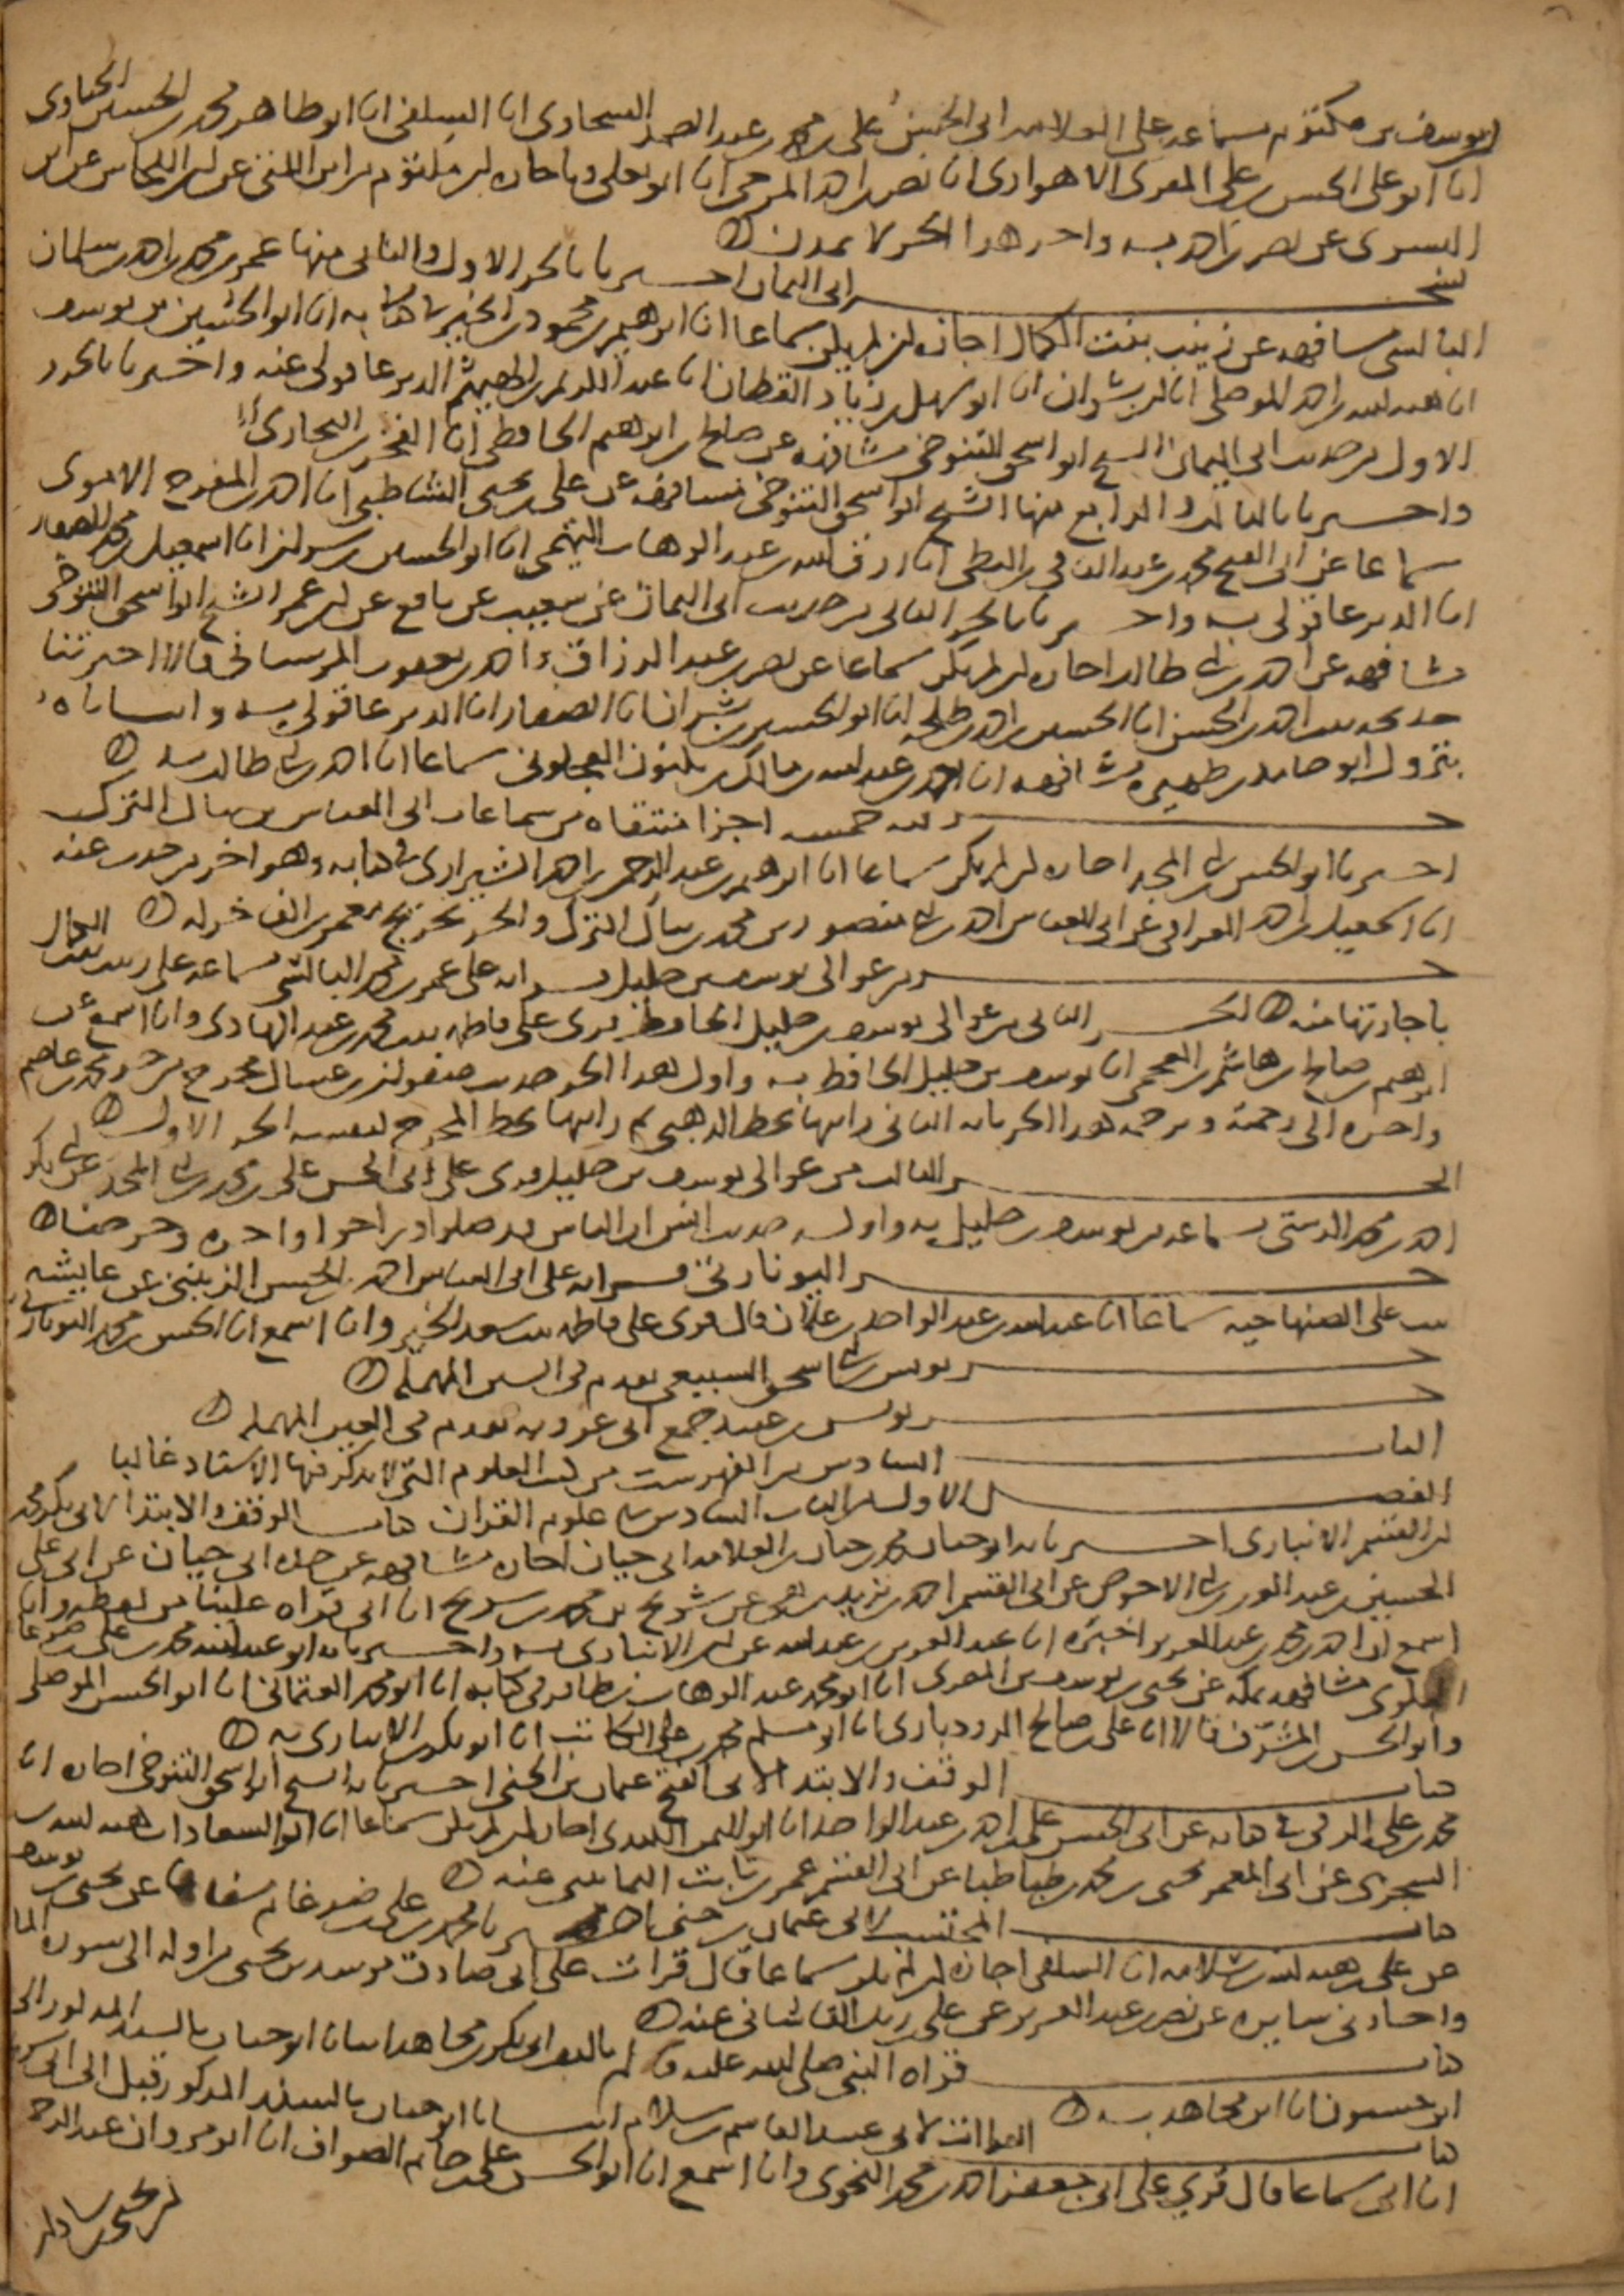 بن يوسف بن مكتوم بسماعه على العلامه ابى الحسن على بن محمد بن عبد الصمد السخاوى انا السلفى انا ابو طاهر محمد بن الحسين الحناوى
انا ابو على الحسن بن على المقرى الاهوازى انا نصر بن احمد المرجى انا ابو يعلى وباجازه ابن مكتوم من ابن اللتى عن ابن اللحاس عن ابن
البسرى عن نصر بن احمد به واخر هذا الجز لا يمدن
نسخه ابى اليمان اخبرنا بالجز الاول والثانى منها عمر بن محمد بن احمد بن سلمان
البالسى مشافهه عن زينب بنت الكمال اجازه ان لم يكن سماعا انا ابرهيم بن محمود بن الخير فى كتابه انا ابو الحسين بن يوسف
انا هبه الله بن احمد الموصلى انا ابن بشران انا ابو سهل بن زياد القطان انا عبد الكريم بن الهيثم الدير عاقولى عنه واخبرنا بالجز
الاول من حديث ابى اليمان الشيخ ابو اسحق التنوخى مشافهه عن صالح بن ابرهيم الحافظى انا الفخر بن البخارى
واخبرنا بالثالث والرابع منها الشيخ ابو اسحق التنوخى مشافهه عن على بن يحيى الشاطبى انا احمد بن المفرج الاموى
سماعا عن ابى الفتح محمد بن عبد الباقى بن البطى انا رزق الله بن عبد الوهاب التيمى انا ابو الحسين بن بشران انا اسمعيل بن محمد الصفار
انا الدير عاقولى به واخبرنا بالجز الثانى من حديث ابى اليمان عن شعيب عن نافع عن ابن عمر الشيخ ابو اسحق التنوخى
مشافهه عن احمد بن ابى طالب اجازه ان لم يكن سماعا عن نصر بن عبد الرزاق واحمد بن يعقوب المرستانى قالا اخبرتنا
بنت احمد بن الحسن انا الحسين بن احمد بن طلحه انا ابو الحسين بن بشران انا الصفار انا الدير عاقولى به وانبانا
بنزول ابو حامد بن ظهيره مشافهه انا احمد بن عبد الله بن مالك بن مكنون العجلونى سماعا انا احمد بن ابى طالب بسنده
جز فيه خمسه اجزا منتقاه من سماعات ابى العباس بن ينال الترك
اخبرنا ابو الحسن بن ابى المجد اجازه ان لم يكن سماعا انا ابرهيم بن عبد الرحمن بن احمد الشيرازى فى كتابه وهو اخر من حدث عنه
انا اسمعيل بن احمد العراقى عن ابى العباس احمد بن ابى منصور بن محمد بن ينال الترك والجز تخريج معمر بن الفاخر له
جز من عوالى يوسف بن خليل قراته على عمر بن محمد البالسى بسماعه على زينب بنت الكمال
باجازتها منه الجز الثانى من عوالى يوسف بن خليل الحافظ قرى على فاطمه بنت محمد بن عبد الهادى وانا اسمع عن
ابرهيم بن صالح بن هاشم بن العجمى انا يوسف بن خليل الحافظ به واول هذا الجز حديث صفوان بن عسال مخرج من جز محمد بن عاصم
واخره الى رحمته وترجمه هذا الجز بانه الثانى رايتها بخط الذهبى ثم رايتها بخط المخرج لنفسه الجز الاول
الجز الثالث من عوالى يوسف بن خليل قرى على ابى الحسن على بن محمد بن ابى المجد عن ابى بكر
احمد بن محمد الدشتى بسماعه من يوسف بن خليل به واوله حديث انس ان الناس قد صلوا
جز اليونارتى قراته على ابى العباس احمد بن الحسن الزينبى عن عايشه
بنت على الصنهاجيه سماعا انا عبد الله بن عبد الواحد بن علان قال قرى على فاطمه بنت سعد الخير وانا اسمع انا الحسن بن محمد اليونارتى
جز يونس بن ابى اسحق السبيعى تقدم فى السين المهمله
جز يونس بن عبيد جمع ابى عروبه تقدم فى العين المهمله
الباب السادس من الفهرست من كتب العلوم التى لا يذكر فيها الاسناد غالبا
الفصل الاول من الباب السادس فى علوم القران كتاب الوقف والابتدا لابى بكر محمد
بن القسم الانبارى اخبرنا به ابو حيان محمد بن حيان بن العلامه ابى حيان اجازه مشافهه عن جده ابى حيان عن ابى على
الحسين بن عبد العزيز بن ابى الاحوص عن ابى القسم احمد بن يزيد بن بقى عن شريح بن محمد بن شريح انا ابى قراه علينا من لفظه وانا
اسمع ان احمد بن محمد بن عبد العزيز اخبره انا عبد العزيز بن عبد الله عن ابن الانبارى به واخبرنا به ابو عبد الله محمد بن على بن ضرغام
البكرى مشافهه بمكه عن يحيى بن يوسف بن المصرى انا ابو محمد عبد الوهاب بن ظافر فى كتابه انا ابو محمد العثمانى انا ابو الحسن الموصلى
وابو الحسن المشرف قالا انا على بن صالح الروذبارى انا ابو مسلم محمد بن على الكاتب انا ابو بكر بن الانبارى به
كتاب الوقف والابتدا لابى الفتح عثمان بن الجنى اخبرنا به الشيخ ابو اسحق التنوخى اجازه انا
محمد بن على الدقى فى كتابه عن ابى الحسن على بن احمد بن عبد الواحد انا ابو اليمن الكندى اجازه ان لم يكن سماعا انا ابو السعادات هبه الله بن
الشجرى عن ابى المعمر يحيى بن محمد بن طباطبا عن ابى القسم عمر بن ثابت الثمانينى عنه
كتاب المحتسب لابى عثمان بن جنى اخبرنا محمد بن على بن ضرغام شفاها عن يحيى بن يوسف
عن على بن هبه الله بن سلامه انا السلفى اجازه ان لم يكن سماعا قال قرات على ابى صادق مرشد بن يحيى من اوله الى سوره
واجازنى سايره عن نصر بن عبد العزيز عن على بن زيد القاشانى عنه
كتاب قراه النبى صلى الله عليه وسلم تاليف ابى بكر بن مجاهد انبانا ابو حيان بالسند المذكور الى
ابن حسنون انا ابن مجاهد به
كتاب القراات لابى عبيد القاسم بن سلام انبانا ابو حيان بالسند المذكور قبل الى
انا ابى سماعا قال قرى على ابى جعفر احمد بن محمد النحوى وانا اسمع انا ابو الحسن على بن حاتم الصواف انا ابو مروان عبد الرحمن